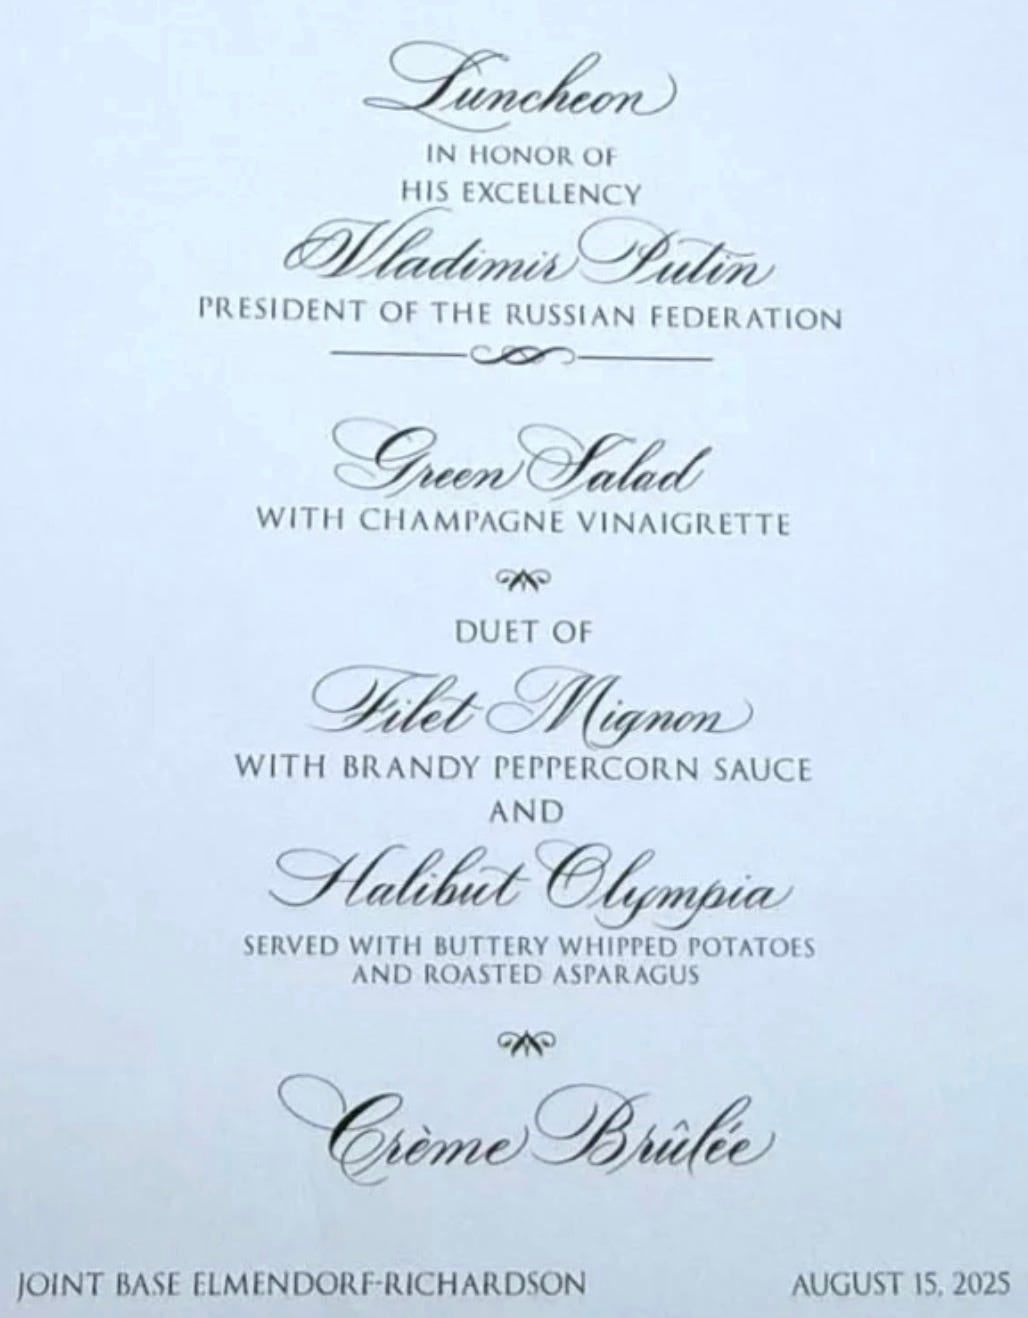 Luncheon
IN HONOR OF
HIS EXCELLENCY
Vladimir Putin
PRESIDENT OF THE RUSSIAN FEDERATION
Green Salad
WITH CHAMPAGNE VINAIGRETTE
DUET OF
Filet Mignon
WITH BRANDY PEPPERCORN SAUCE
AND
Halibut Olympia
SERVED WITH BUTTERY WHIPPED POTATOES
AND ROASTED ASPARAGUS
Crème Brûlée
JOINT BASE ELMENDORF-RICHARDSON
AUGUST 15, 2025